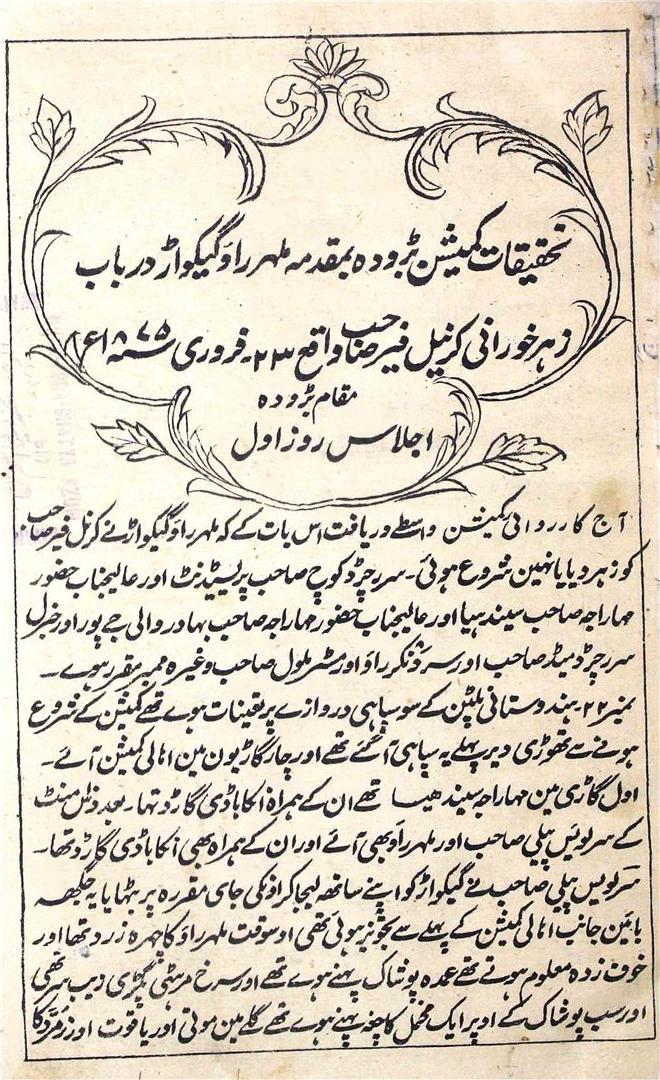 تحقیقات کمیشن بڑودہ بمقدمہ ملہر راؤ گیکواڑ در باب
زہر خورانی کرنیل فیر صاحب واقع ۲۳۔ فروری سنہ ۱۸۷۵ء
مقام بڑودہ
اجلاس روز اول
آج کارروائی کمیشن واسطے دریافت اس بات کے کہ ملہر راؤ گیکواڑ نے کرنل فیر صاحب
کو زہر دیا یا نہین شروع ہوئی۔ سر رچرڈ کوچ صاحب پریسیڈنٹ اور عالیجناب حضور
مہاراجہ صاحب سیندہیا اور عالیجناب حضور مہاراجہ صاحب بہادر والی جے پور اور جنرل
سر رچرڈ میڈ صاحب اور سر ڈنکر راؤ اور مسٹر ملول صاحب وغیرہ ممبر مقرر ہوے۔
نمبر ۲۲۔ ہندوستانی پلٹن کے سو سپاہی دروازے پر تعینات ہوے تھے کمیشن کے شروع
ہونے سے تھوڑی دیر پہلے یہ سپاہی آ گئے تھے اور چار گاڑیون مین اہالی کمیشن آئے۔
اول گاڑی مین مہاراجہ سیندھیا تھے ان کے ہمراہ انکا باڈی گارڈ تہا۔ بعد دس منٹ
کے سر لویس پیلی صاحب اور ملہر راؤ بھی آئے اور ان کے ہمراہ بھی انکا باڈی گارڈ تھا۔
سر لویس پیلی صاحب نے گیکواڑ کو اپنے ساتھ لیجا کر اونکی جای مقررہ پر بٹہایا یہ جگہہ
بائین جانب اہالی کمیشن کے پہلے سے تجویز ہوئی تھی اوسوقت ملہر راؤ کا چہرہ زرد تھا اور
خوف زدہ معلوم ہوتے تھے عمدہ پوشاک پہنے ہوے تھے اور سرخ مرہٹی پگڑی زیب سر تھی
اور سب پوشاک کے اوپر ایک مخمل کا چوغہ پہنے ہوے تھے گلے مین موتی اور یاقوت اور زمرد کا